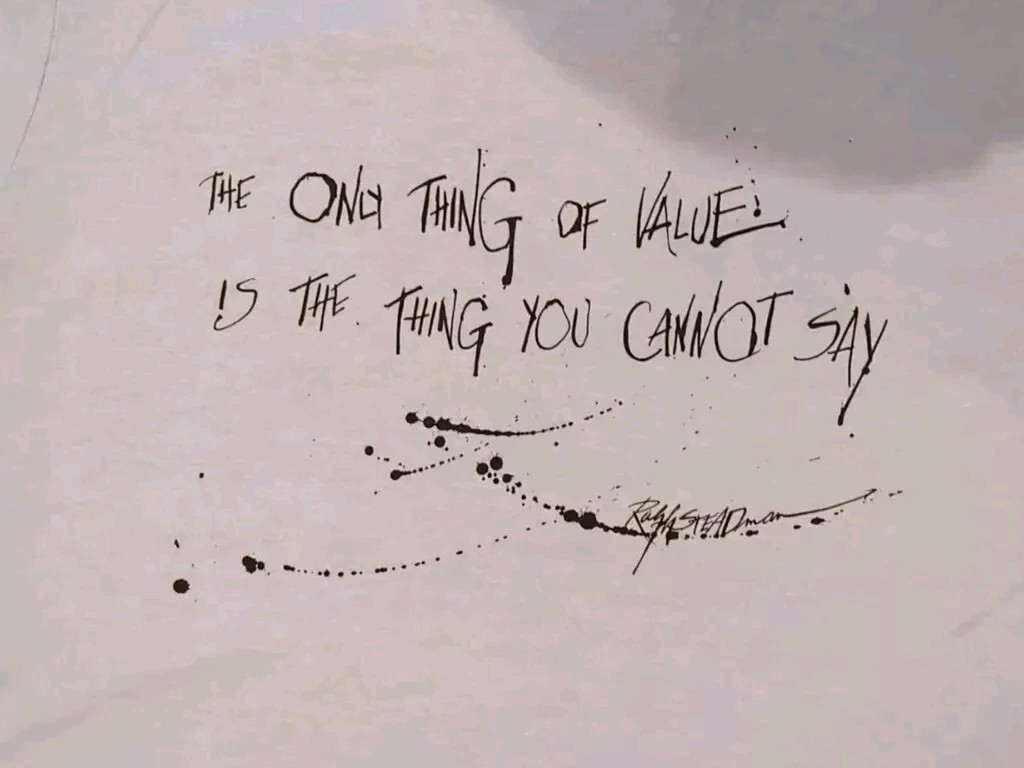 THE ONLY THING OF VALUE
IS THE THING YOU CANNOT SAY
Ralph STEADman